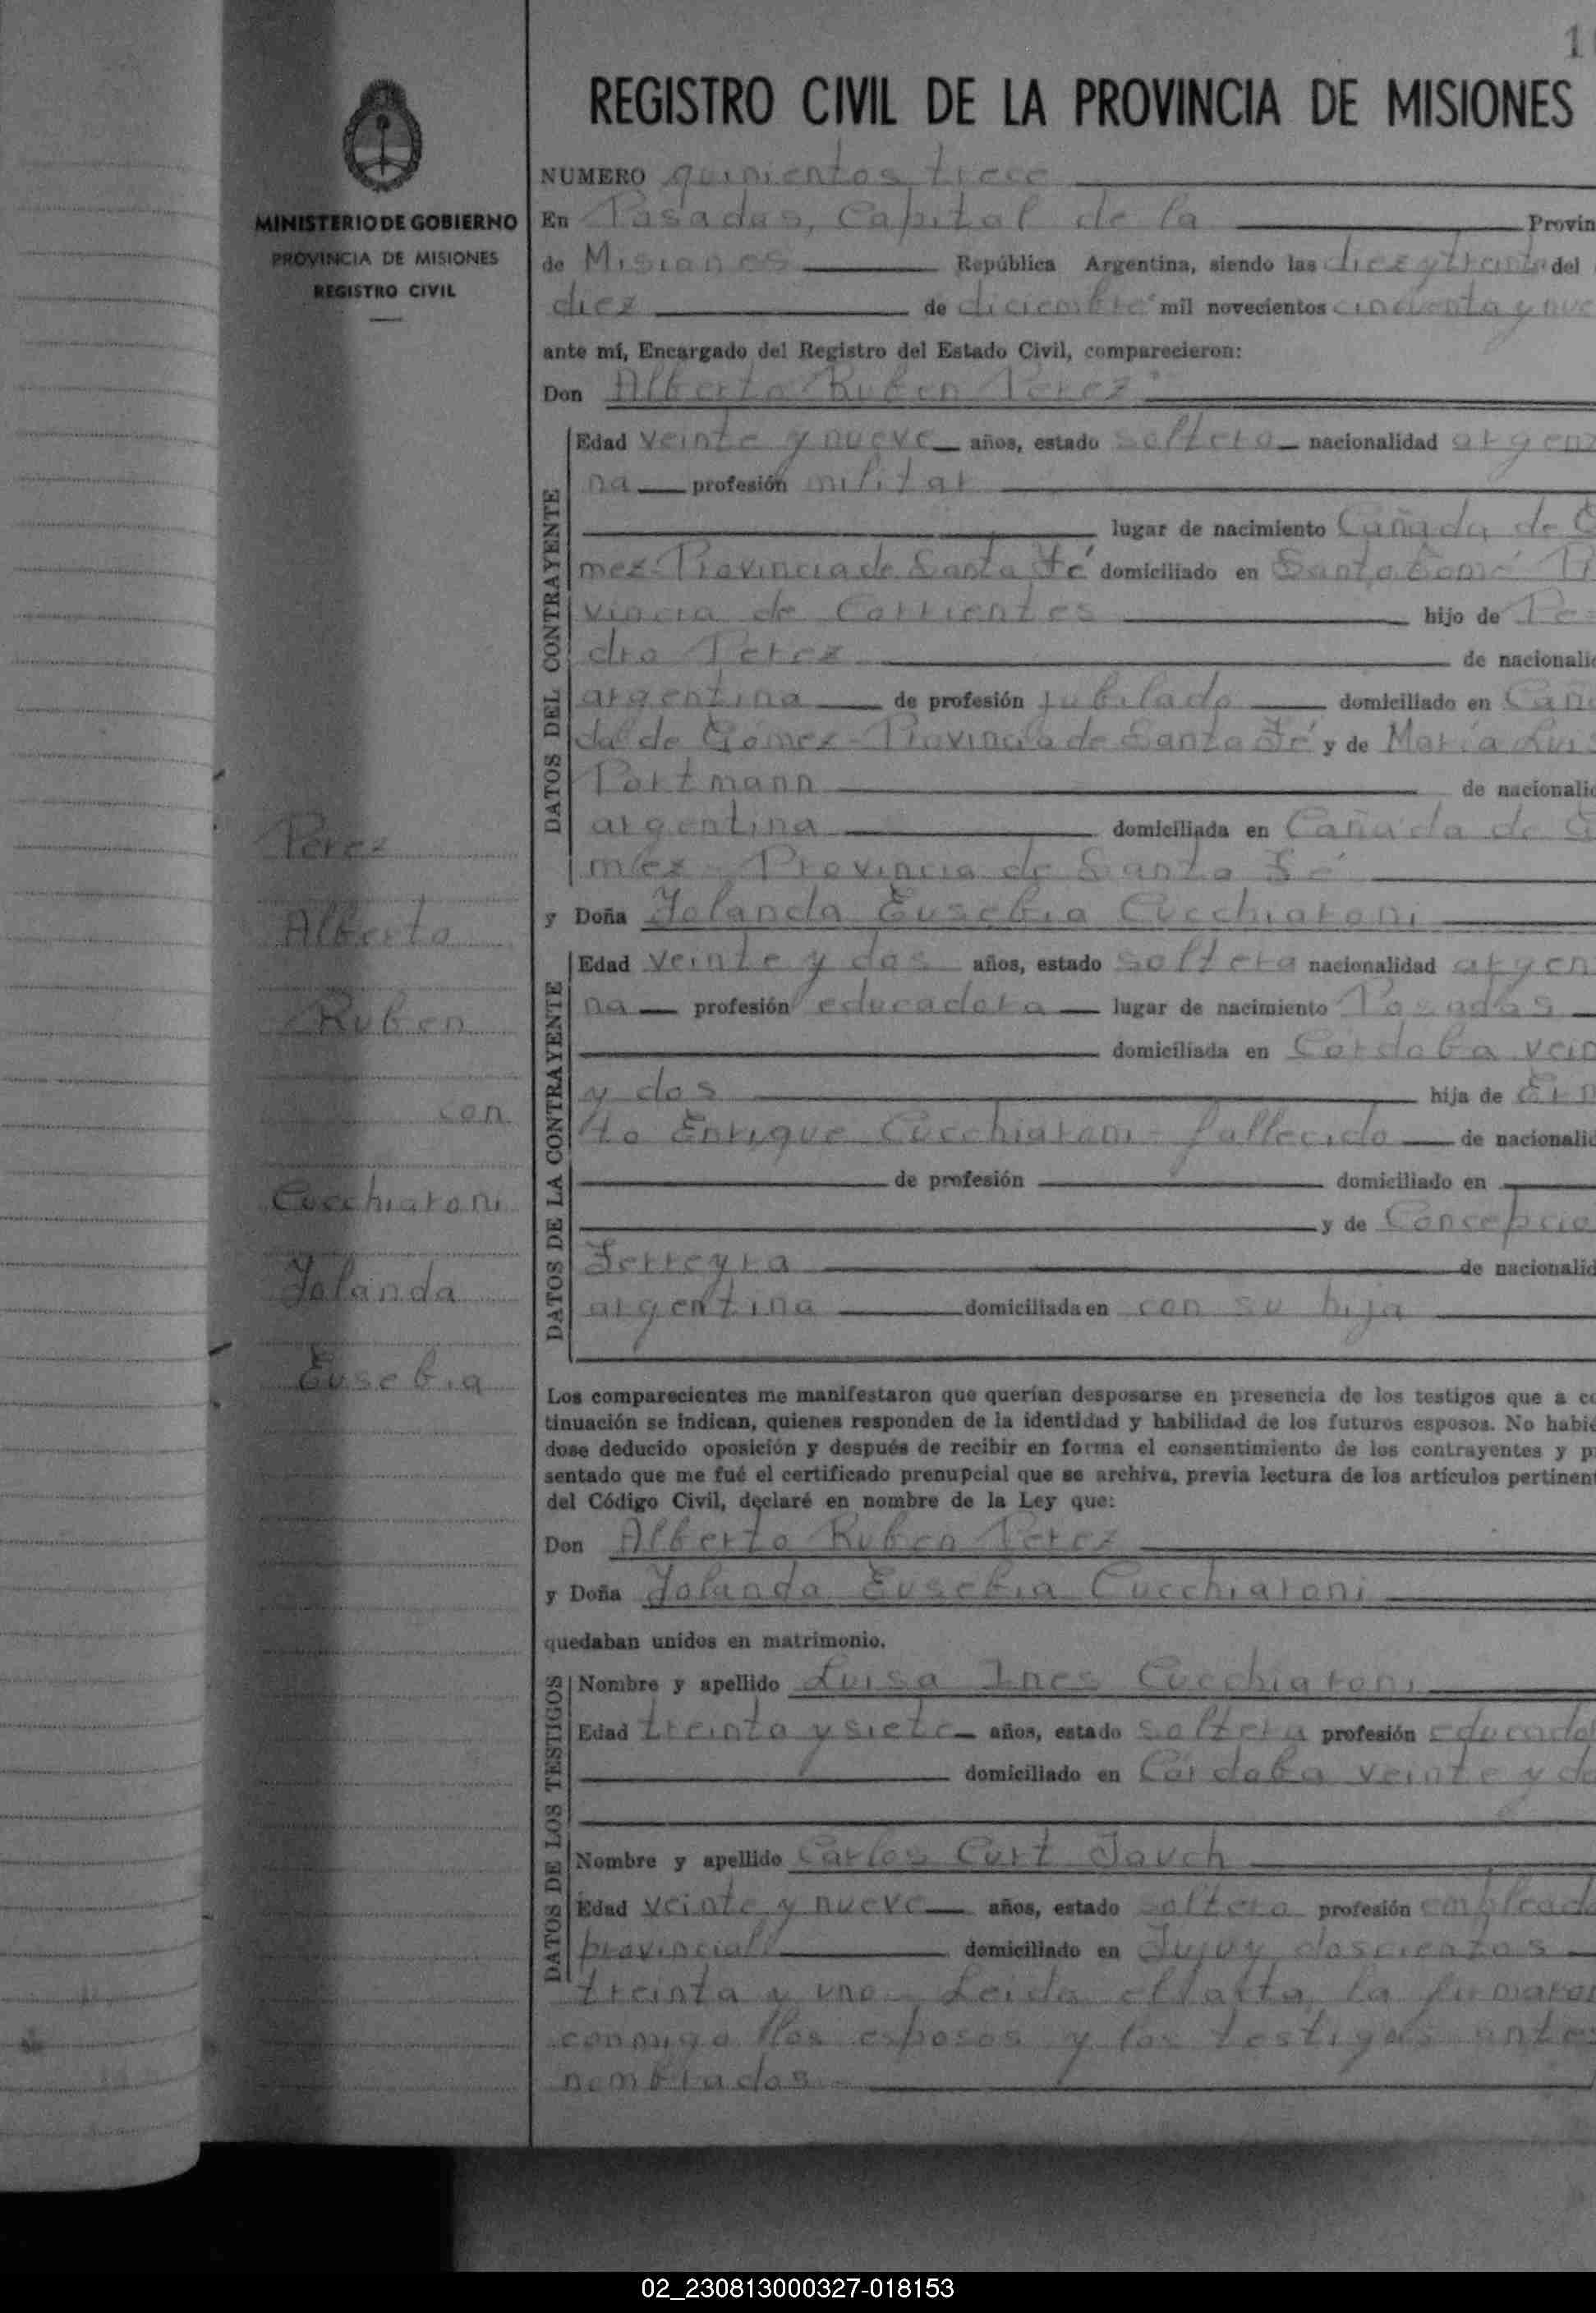 1
REGISTRO CIVIL DE LA PROVINCIA DE MISIONES
MINISTERIO DE GOBIERNO
PROVINCIA DE MISIONES
REGISTRO CIVIL
NUMERO quinientos trece
En Posadas, Capital de la Provin
de Misiones República Argentina, siendo las diez y treinta del
diez de diciembre mil novecientos cincuenta y nue
ante mí, Encargado del Registro del Estado Civil, comparecieron:
Don Alberto Ruben Perez
DATOS DEL CONTRAYENTE
Edad veinte y nueve años, estado soltero nacionalidad argen
na profesión militar
lugar de nacimiento Cañada de G
mez - Provincia de Santa Fé domiciliado en Santo Tomé P
vincia de Corrientes hijo de Pe
dro Perez de nacionalid
argentina de profesión jubilado domiciliado en Caña
da de Gómez - Provincia de Santa Fé y de María Luis
Portmann de nacionalid
argentina domiciliada en Cañada de G
mez - Provincia de Santa Fé
y Doña Yolanda Eusebia Cucchiaroni
DATOS DE LA CONTRAYENTE
Edad veinte y dos años, estado soltera nacionalidad argen
na profesión educadora lugar de nacimiento Posadas
domiciliada en Córdoba vein
y dos hija de Ern
to Enrique Cucchiaroni - fallecido de nacionalid
de profesión domiciliado en
y de Concepcio
Ferreyra de nacionalid
argentina domiciliada en con su hija
Los comparecientes me manifestaron que querían desposarse en presencia de los testigos que a co
tinuación se indican, quienes responden de la identidad y habilidad de los futuros esposos. No habié
dose deducido oposición y después de recibir en forma el consentimiento de los contrayentes y p
sentado que me fué el certificado prenupcial que se archiva, previa lectura de los artículos pertinent
del Código Civil, declaré en nombre de la Ley que:
Don Alberto Ruben Perez
y Doña Yolanda Eusebia Cucchiaroni
quedaban unidos en matrimonio.
DATOS DE LOS TESTIGOS
Nombre y apellido Luisa Ines Cucchiaroni
Edad treinta y siete años, estado soltera profesión educado
domiciliado en Córdoba veinte y do
Nombre y apellido Carlos Curt Jauch
Edad veinte y nueve años, estado soltero profesión emplead
provincial domiciliado en Jujuy doscientos
treinta y uno - Leida el acta, la firmaron
conmigo los esposos y los testigos antes
nombrados.-
Perez
Alberto
Ruben
con
Cucchiaroni
Yolanda
Eusebia
02_230813000327-018153